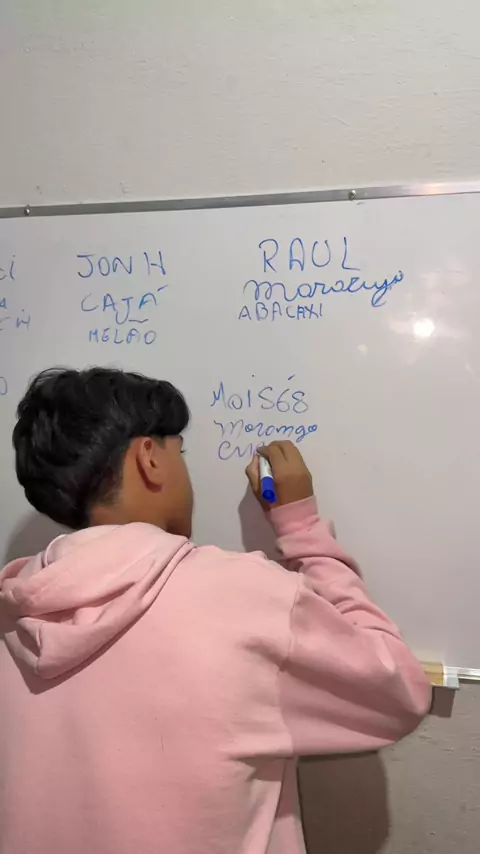 JONH
CAJÁ
MELÃO
RAUL
maracujá
ABACAXI
MOISÉS
morango